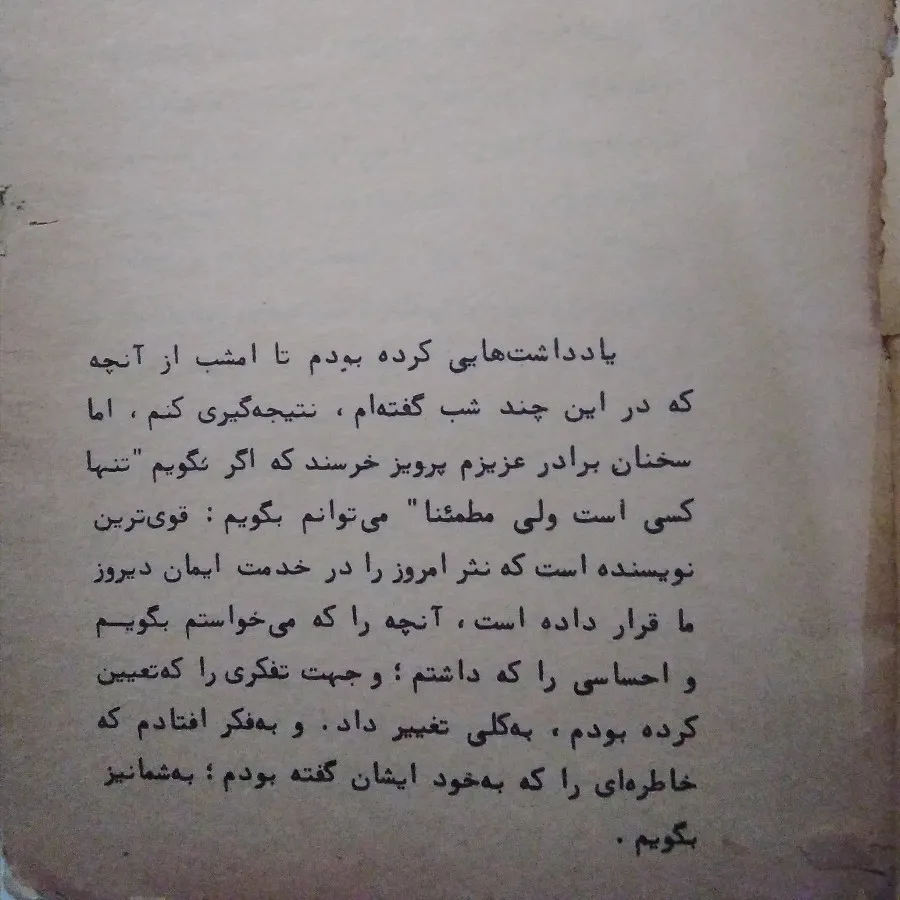 یادداشت‌هایی کرده بودم تا امشب از آنچه
که در این چند شب گفته‌ام ، نتیجه‌گیری کنم ، اما
سخنان برادر عزیزم پرویز خرسند که اگر نگویم "تنها
کسی است ولی مطمئنا" می‌توانم بگویم : قوی‌ترین
نویسنده است که نثر امروز را در خدمت ایمان دیروز
ما قرار داده است ، آنچه را که می‌خواستم بگویـــم
و احساسی را که داشتم ؛ و جهت تفکری را که‌تعیین
کرده بودم ، به‌کلی تغییر داد . و به‌فکر افتادم که
خاطره‌ای را که به‌خود ایشان گفته بودم ؛ به‌شمانیز
بگویم .